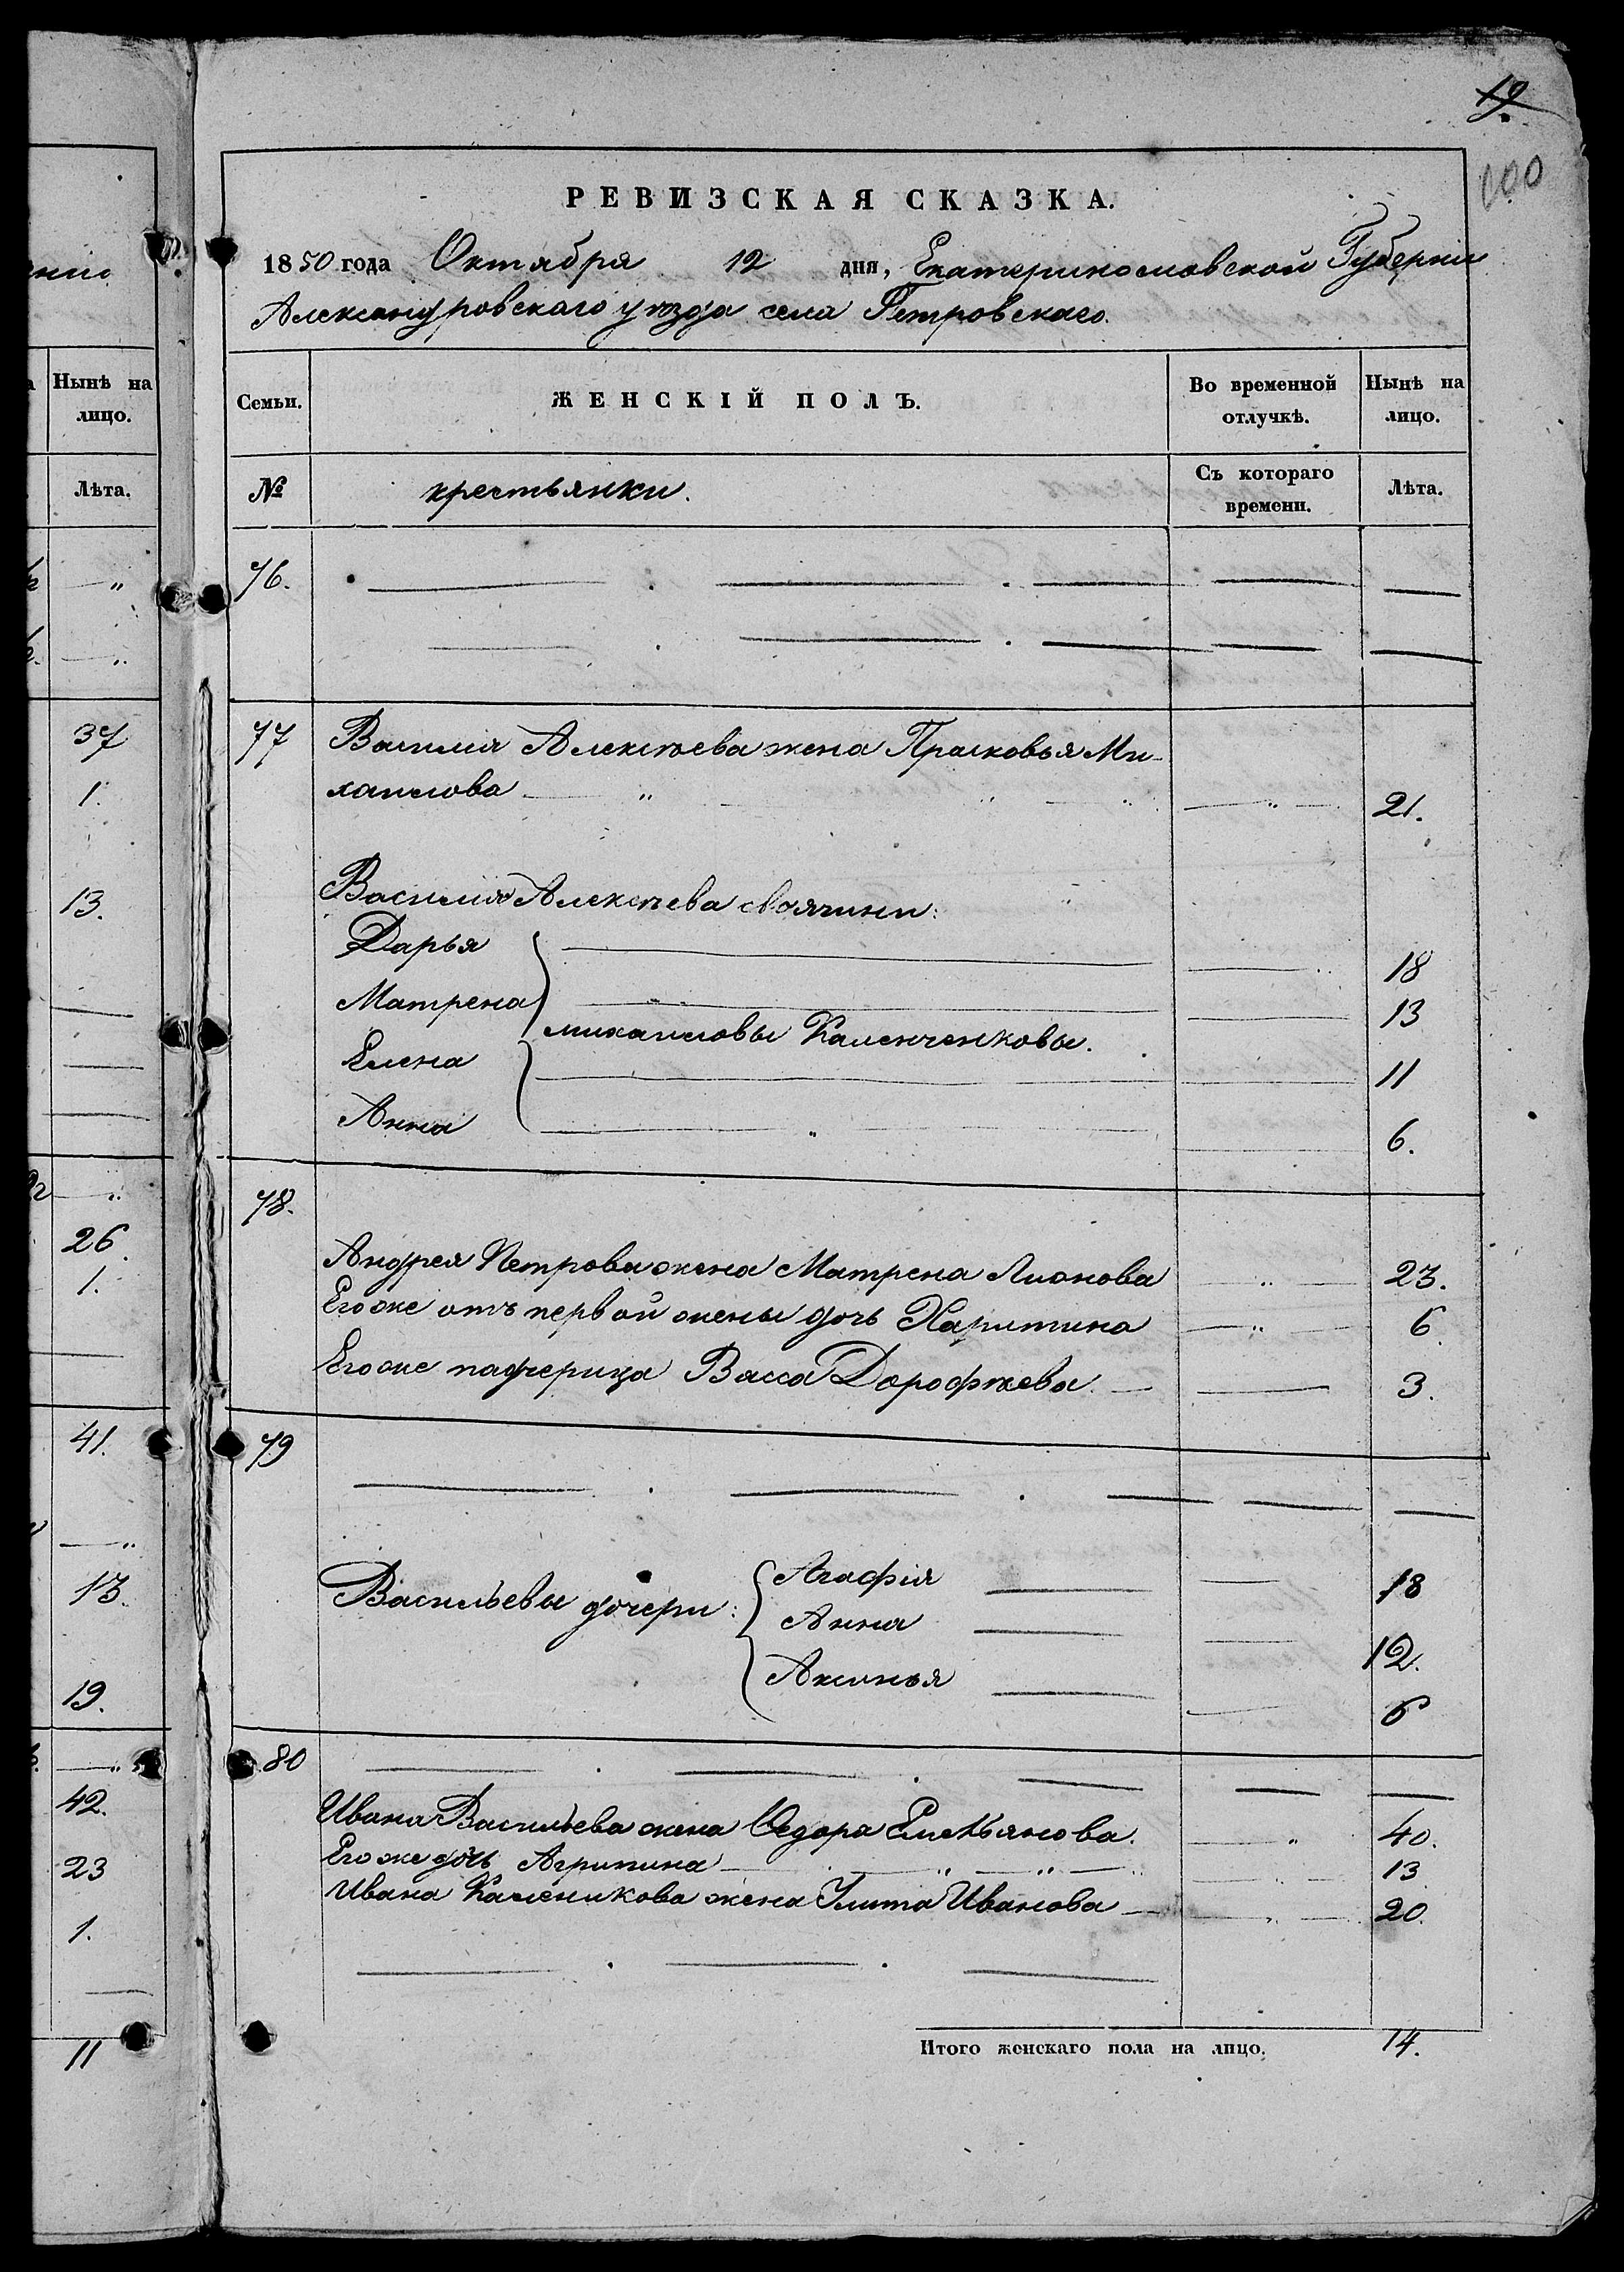 19.
100
РЕВИЗСКАЯ СКАЗКА.
1850 года Октября 12 дня, Екатеринославской Губернии
Александровского уѣзда села Петровскаго.
Семьи. ЖЕНСКІЙ ПОЛЪ. Во временной отлучкѣ. Нынѣ на лицо.
№ крестьянки. Съ котораго времени. Лѣта.
76.
77 Василия Алексѣева жена Прасковья Ми-
хаилова " " " " 21.
Василия Алексѣева своячини:
Дарья 18
Матрена 13
михаиловы Каленченковы.
Елена 11
Анна " 6.
78.
Андрея Петрова жена Матрена Лионова " 23.
Его же отъ первой жены дочь Харитина " 6
Его же падчерица Васса Дорофѣева. 3.
79
Васильевы дочери:
Агафія 18
Анна 12.
Аксинья 6
80
Ивана Васильева жена Федора Емельянова. " 40.
Его же дочь Агрипина " " " 13
Ивана Каленикова жена Улита Иванова " 20.
Итого женскаго пола на лицо. 14.
Нынѣ на
лицо.
Лѣта.
"
"
37
1.
13.
"
26.
1.
41.
"
13.
19.
"
42.
23
1.
11